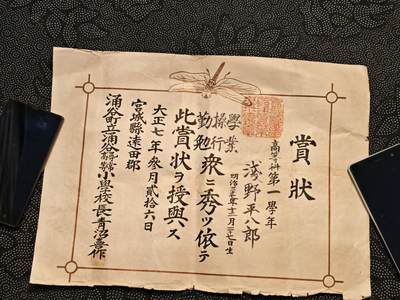 賞狀
高等科第一學年
淺野平八郎
明治三十七年十二月二十七日生
學業
操行
勤勉
衆ニ秀ツ依テ
此賞狀ヲ授與ス
大正七年參月貳拾六日
宮城縣遠田郡
涌谷町立涌谷尋常高等小學校長青沼